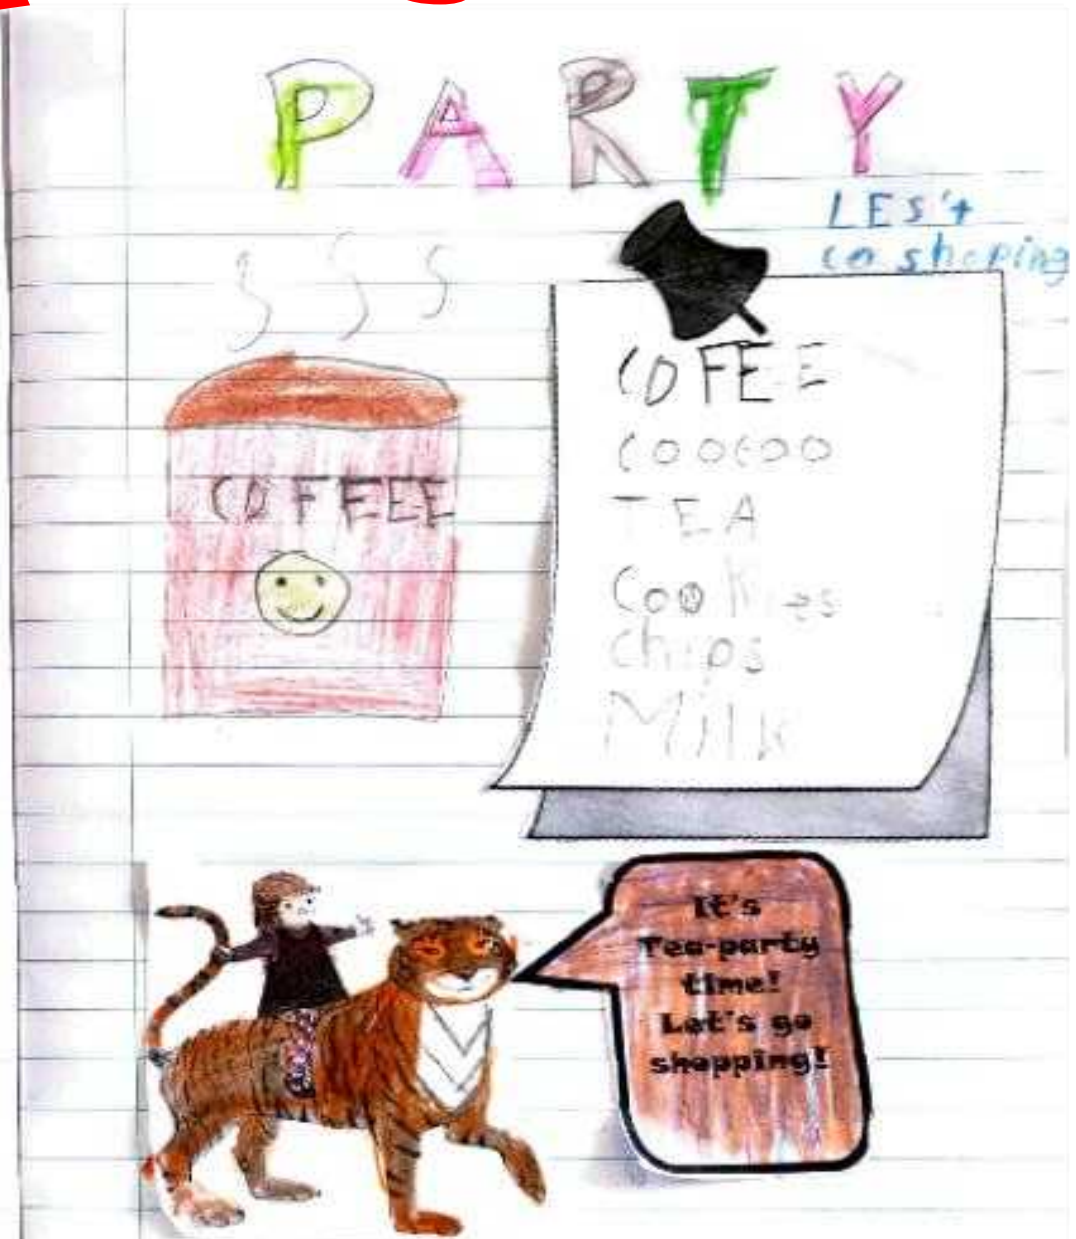 PARTY
LES't
co shoping
COFEE
COOCOO
TEA
Cookies
chips
Milk
COFEEE
It's
Tea-party
time!
Let's go
shopping!